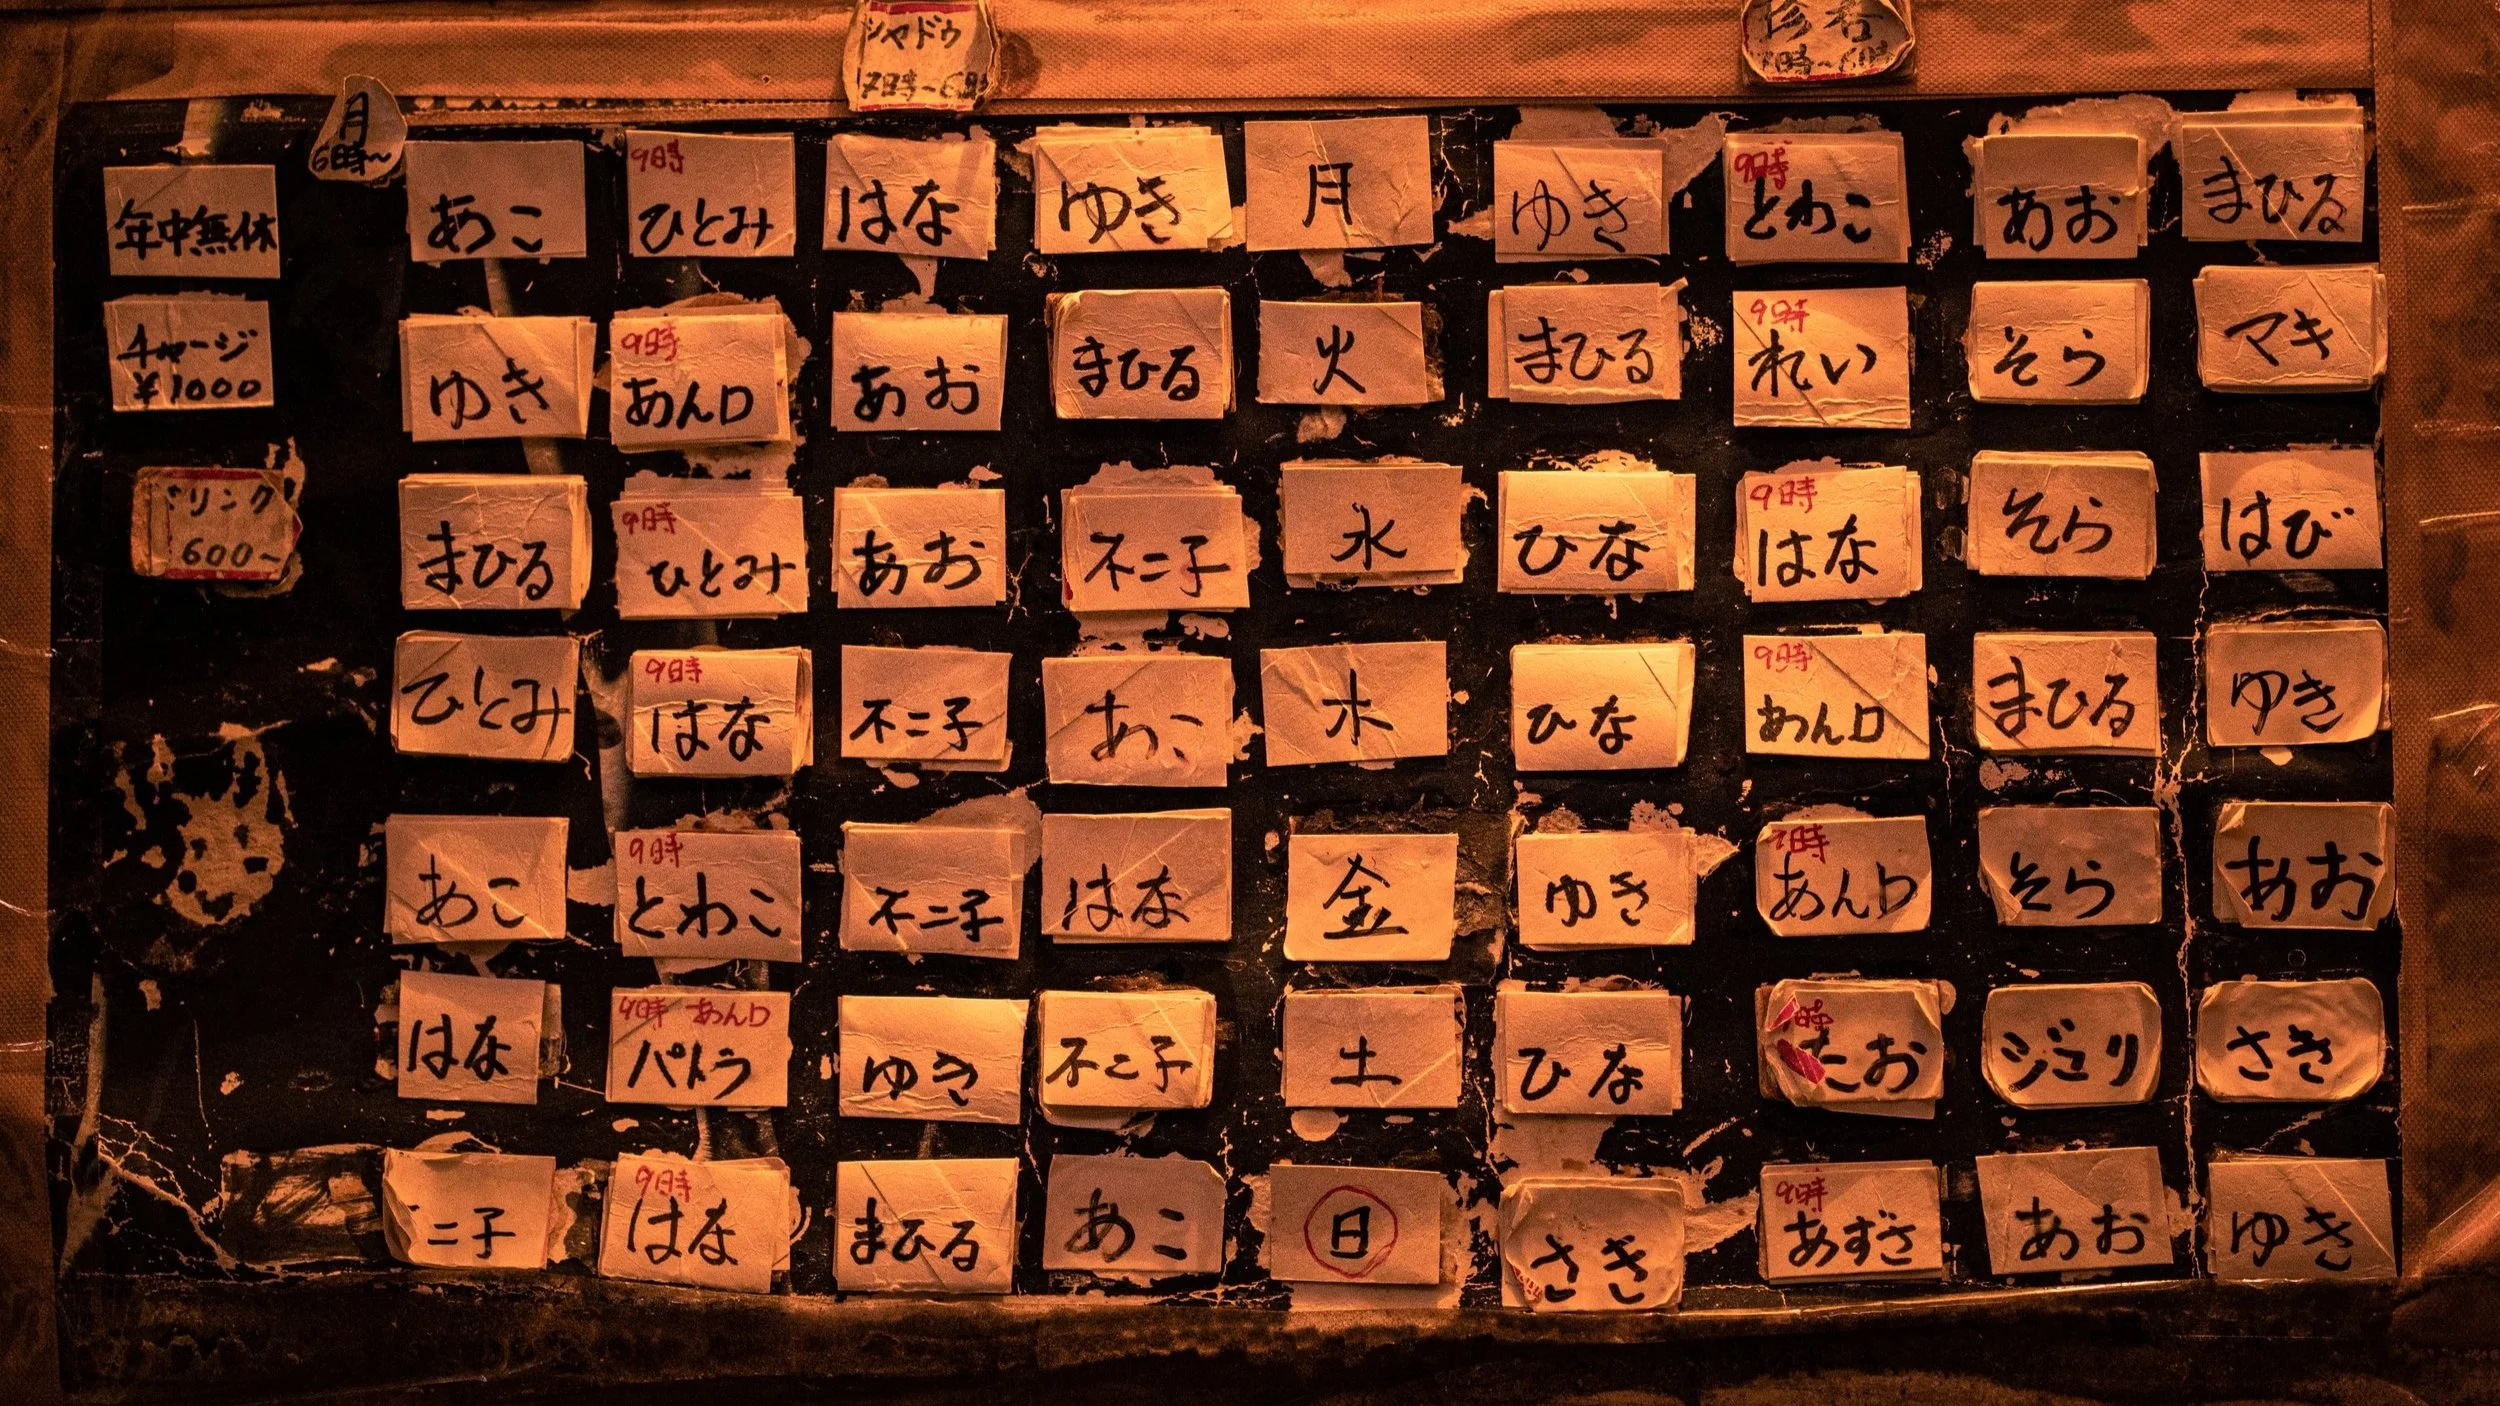 シャドウ
7時~6時
月
6時~
年中無休
あこ
9時
ひとみ
はな
ゆき
月
ゆき
9時
とわこ
あお
まひる
チャージ
¥1000
ゆき
9時
あんロ
あお
まひる
火
まひる
9時
れい
そら
マキ
リンク
600~
まひる
9時
ひとみ
あお
不二子
水
ひな
9時
はな
そら
はび
ひとみ
9時
はな
不二子
あこ
木
ひな
9時
あんロ
まひる
ゆき
あこ
9時
とわこ
不二子
はな
金
ゆき
時
あんロ
そら
あお
はな
9時 あんロ
パトラ
ゆき
不二子
土
ひな
時
たお
ジュリ
さき
二子
9時
はな
まひる
あこ
日
さき
9時
あずさ
あお
ゆき